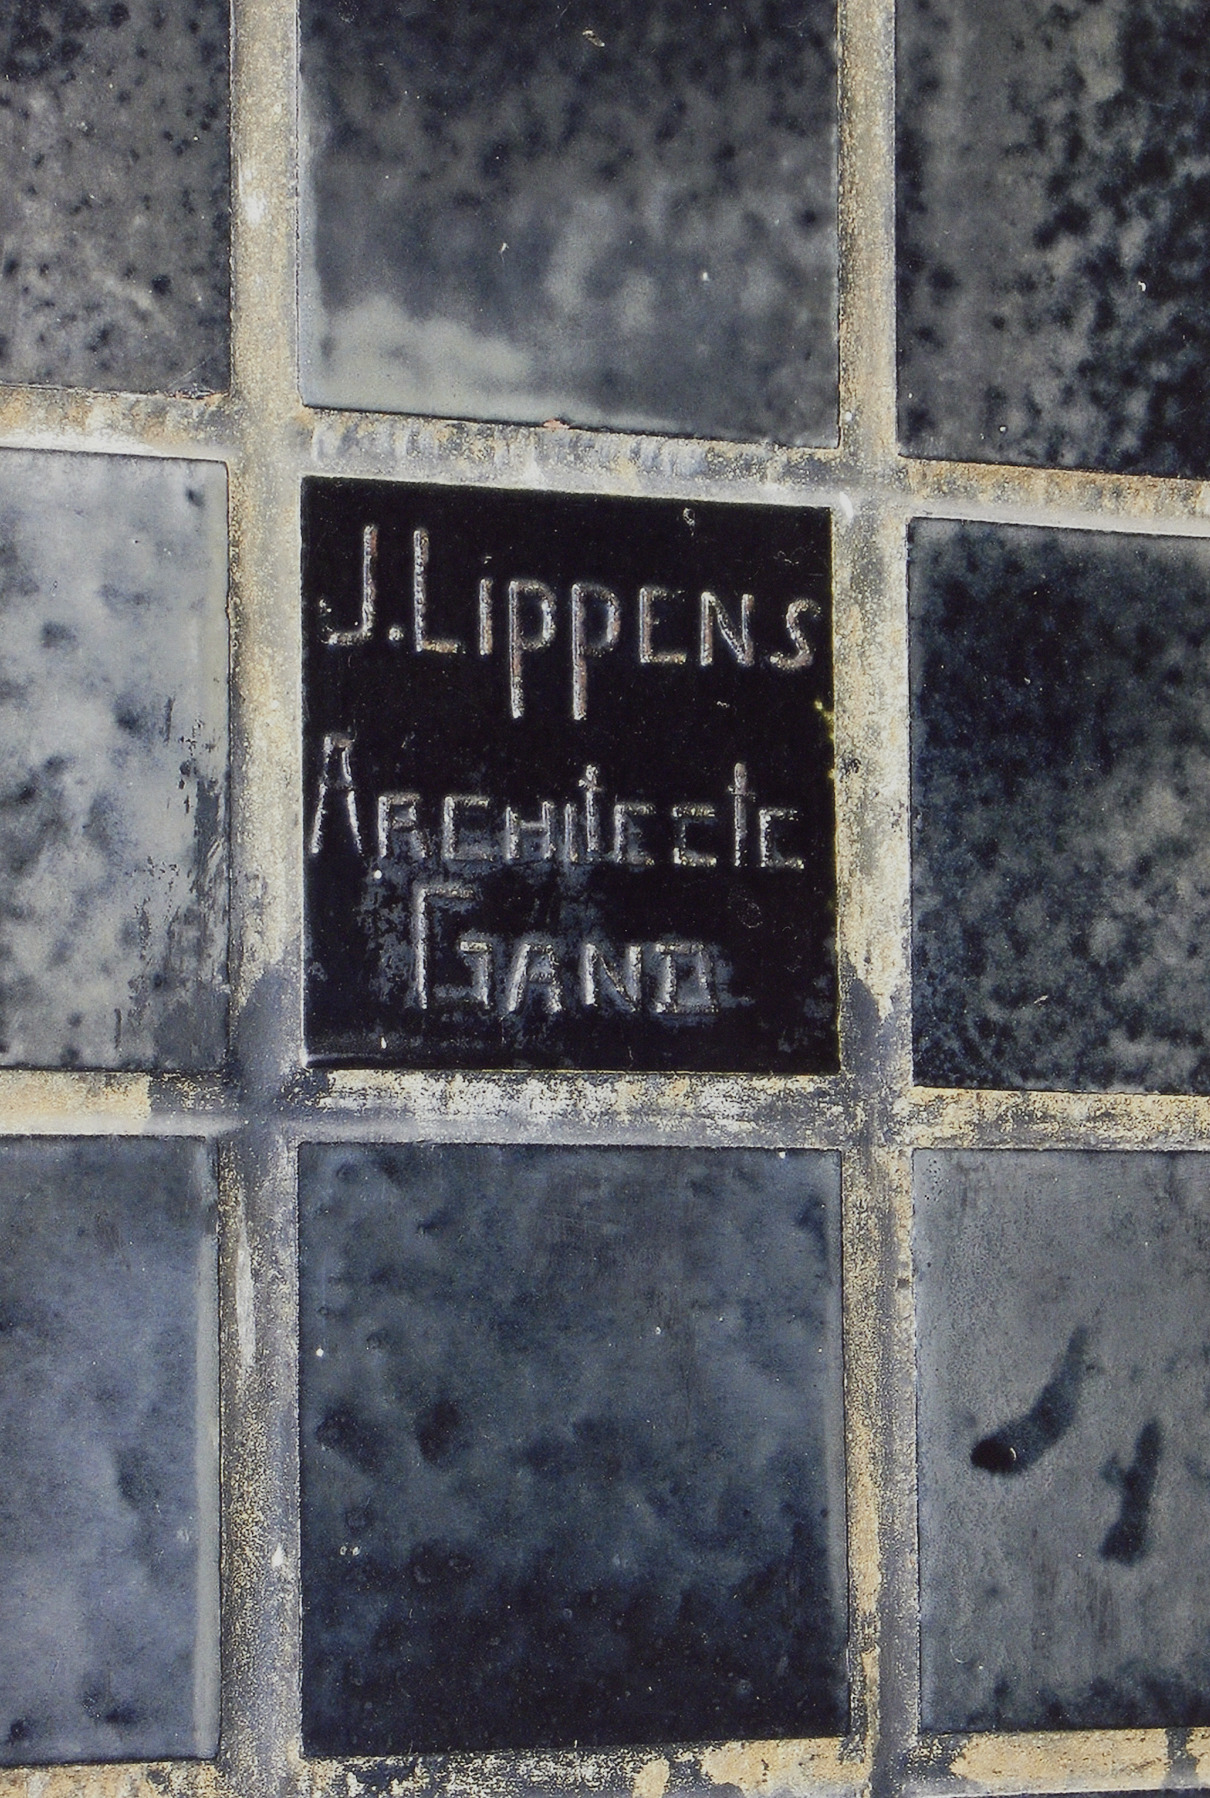 J. Lippens
Architecte
Gand